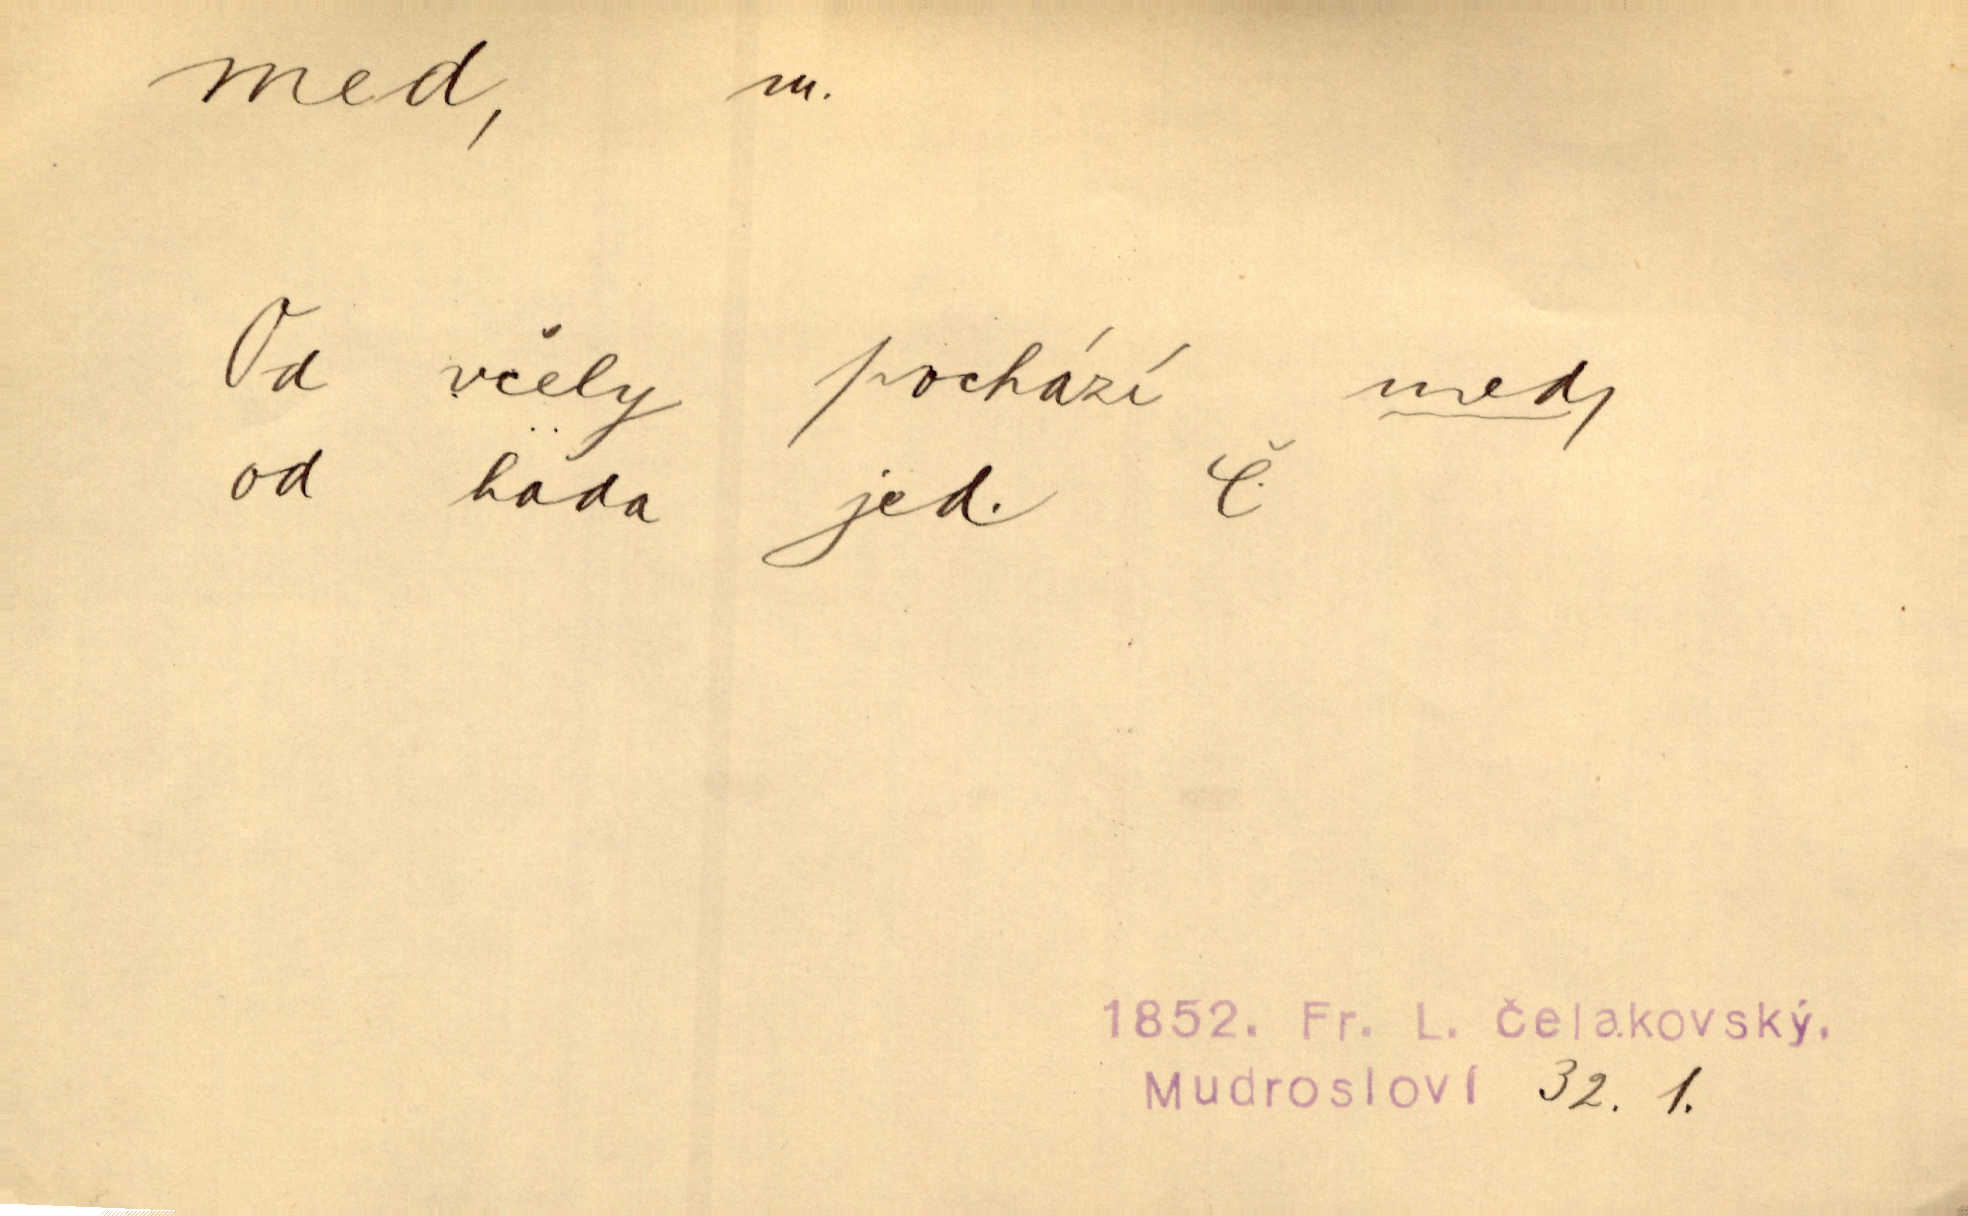 med, m.
Od včely pochází med,
od hada jed. Č.
1852. Fr. L. Čelakovský.
Mudrosloví 32. 1.